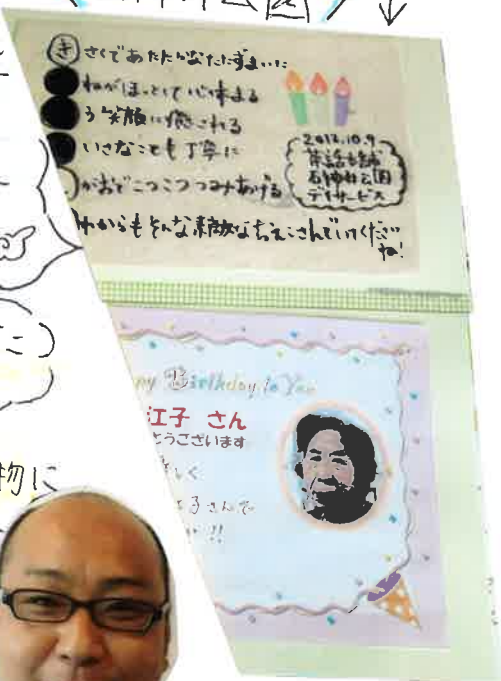 きさくであたたかなたたずまいに
ねがほっとして心休まる
う笑顔に癒される
いさなことも丁寧に
がおでこつこつつみあげる
からもそんな素敵なちえこさんでいてくださ
ね!
2013.10.9
石神井公園
デイサービス
py Birthday to You
江子 さん
とうございます
しく
子さんで
!!
物に